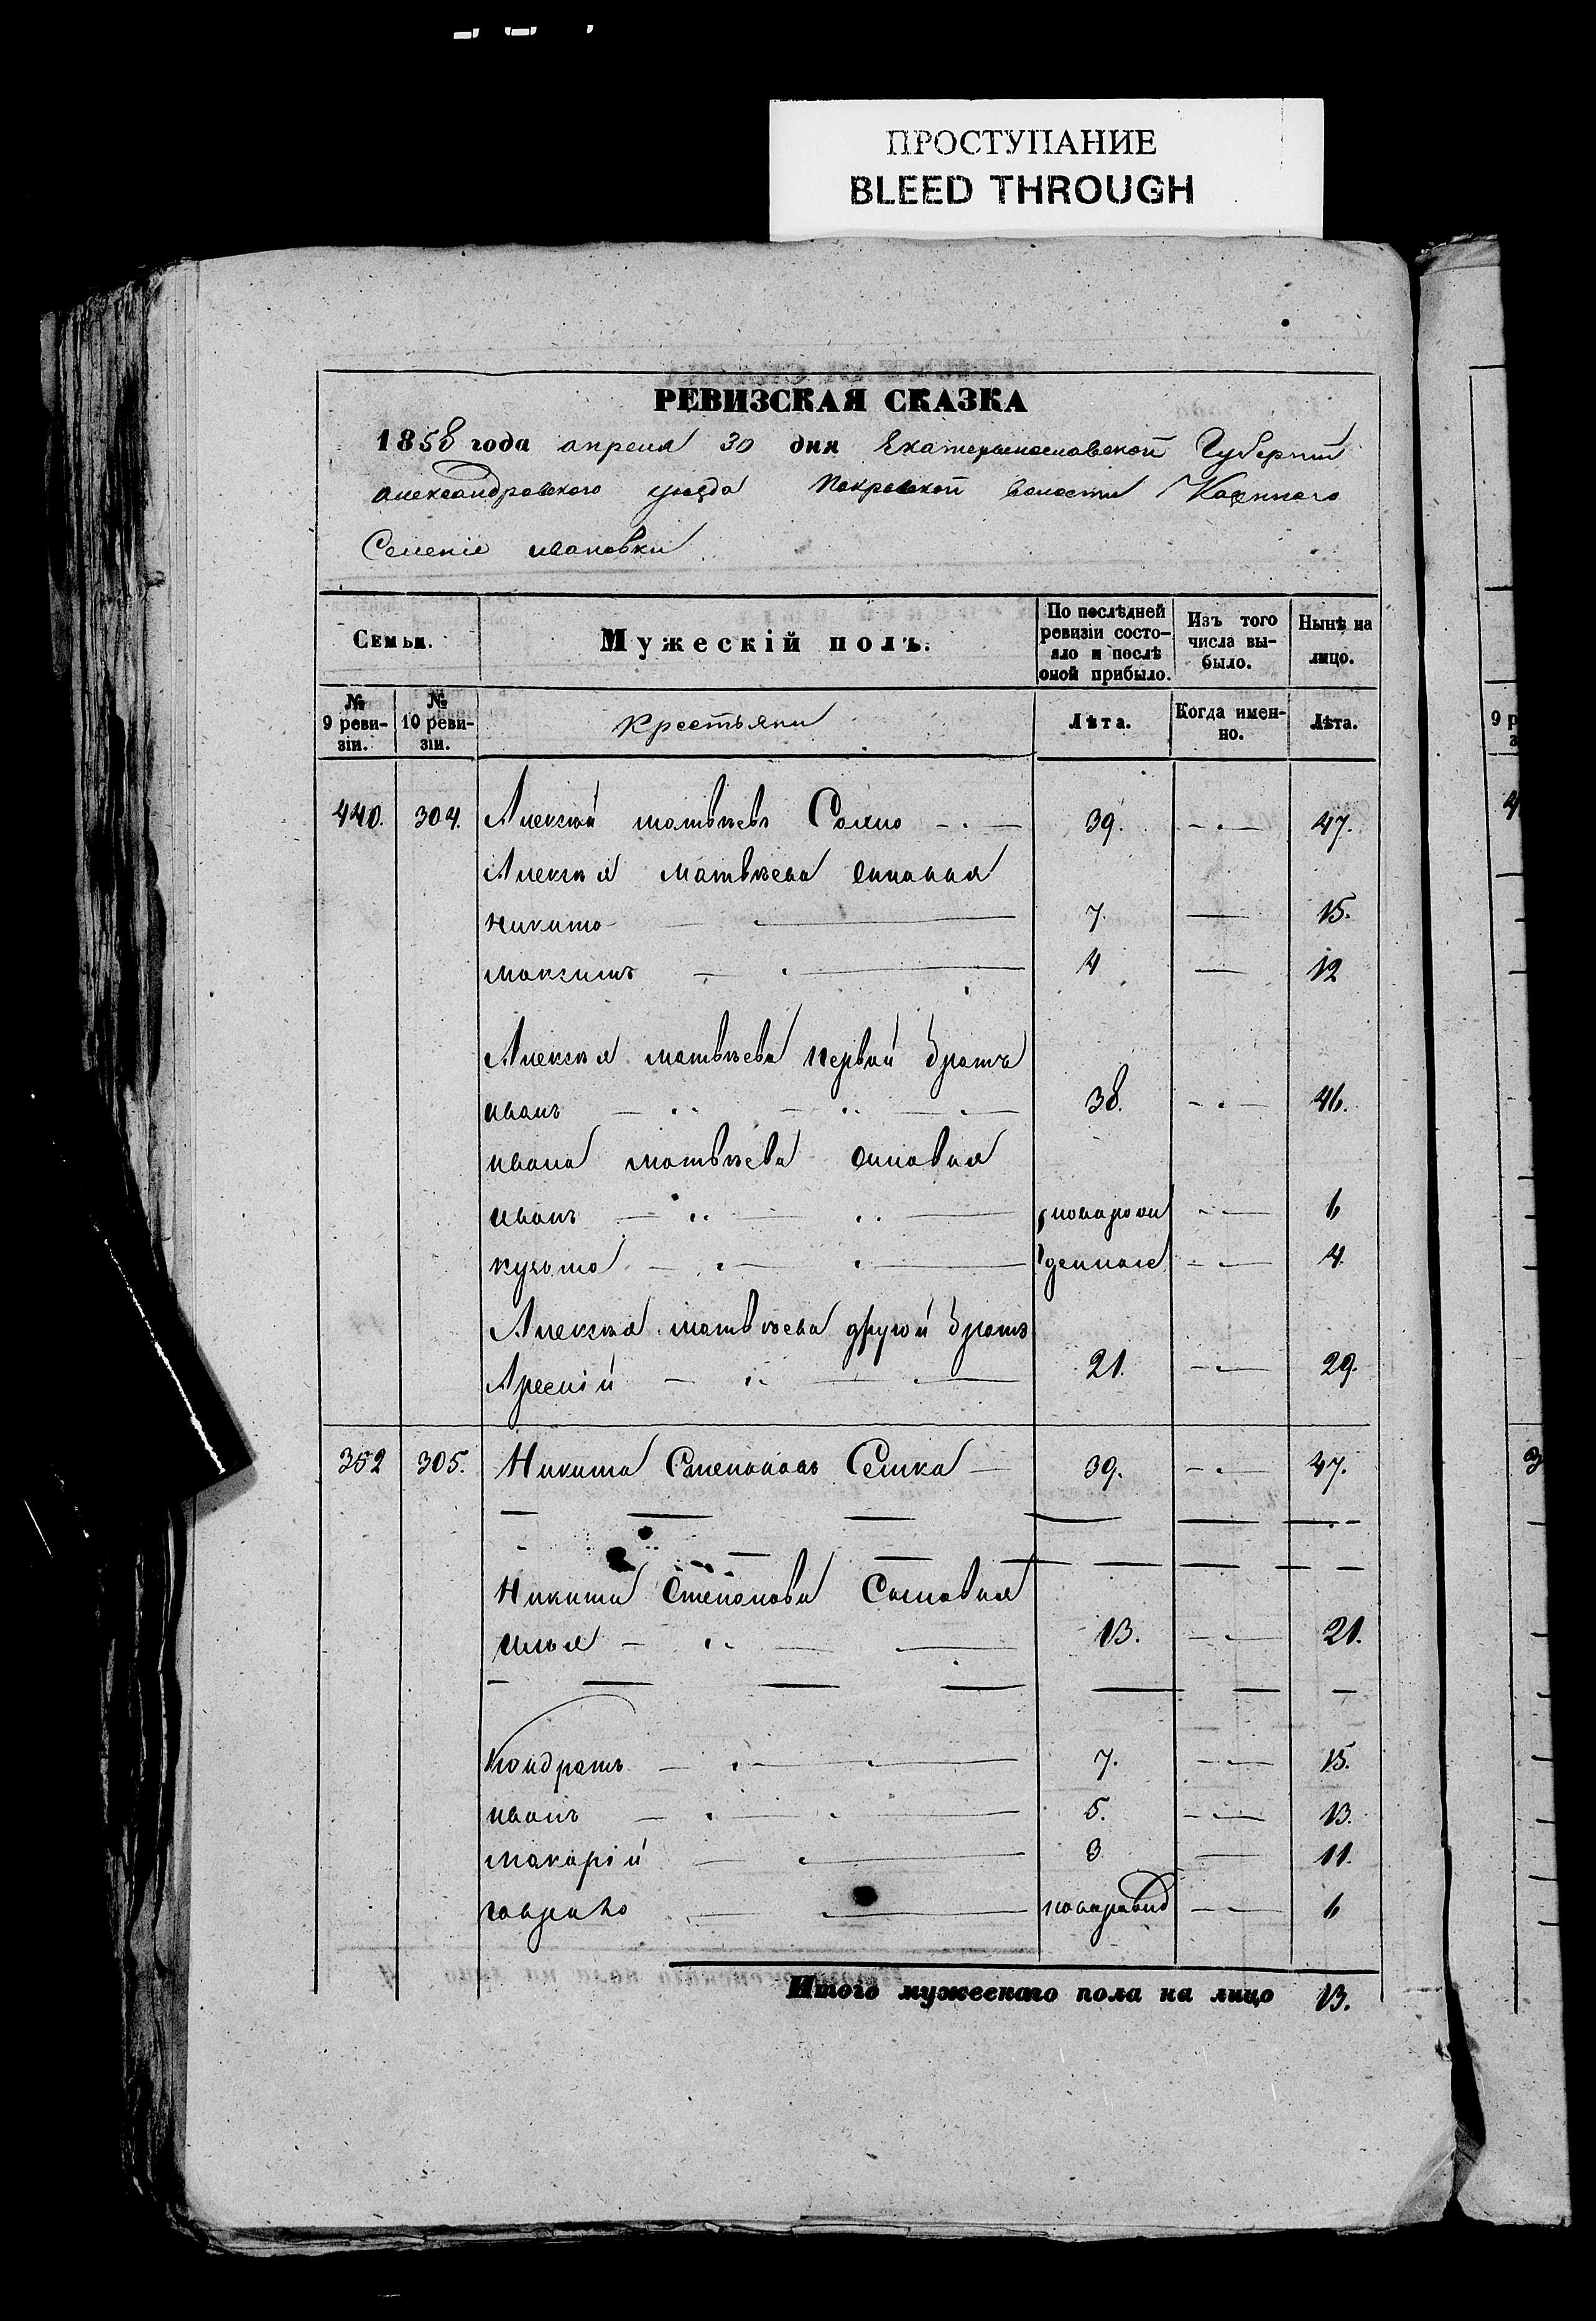 ПРОСТУПАНИЕ
BLEED THROUGH
РЕВИЗСКАЯ СКАЗКА
1858 года апреля 30 дня Екатеринославской Губернии
александровского уѣзда Покровской волости Казенного
Селенія ивановки
Семьи.
Мужескій полъ.
По послѣдней ревизіи состо-
яло и послѣ
оной прибыло.
Изъ того
числа вы-
было.
Нынѣ на
лицо.
№
9 реви-
зіи.
№
10 реви-
зіи.
Крестьяни
Лѣта.
Когда имен-
но.
Лѣта.
440. 304. Алексѣй матвѣевъ 39. 47.
Алексѣя матвѣева
никита 7. 15.
максимъ 4 12
Алексѣя матвѣева первый братъ
иванъ 38. 46.
ивана матвѣева сыновья
иванъ 6
кузьма 4.
Алексѣя матвѣева другой братъ
21. 29.
352 305. Никита Степановъ Семка 39. 47.
Никиты Степанова Сыновья
илья 13. 21.
Кондратъ 7. 15.
иванъ 5. 13.
макарій 3 11.
гаврило 6
Итого мужескаго пола на лицо 13.